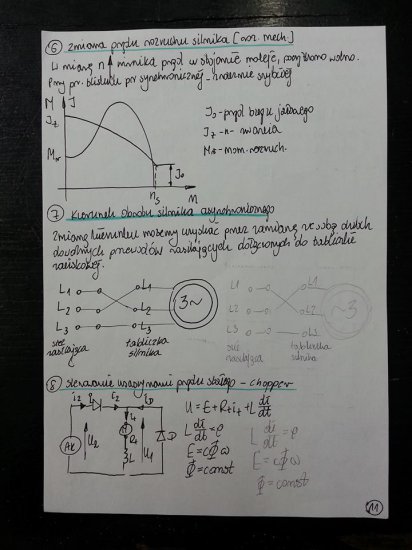 ⑥ zmiana prądu rozruchu silnika [oor. mech.]
W miarę n↑ silnika prąd w stojanie maleje, początkowo wolno.
Przy pr. bliskiej pr synchronicznej - znacznie szybciej
M J
Jz
Mr
J0
ns
n
J0 - prąd biegu jałowego
Jz - n - zwarcia
Mr - mom. rozruch.
⑦ Kierunek obrotu silnika asynchronicznego
Zmianę kierunku możemy uzyskać przez zamianę ze sobą dwóch
dowolnych przewodów zasilających dołączonych do tabliczki
zaciskowej.
L1 L1
L2 L2
L3 L3
3~
sieć zasilająca
tabliczka silnika
L1 L1
L2 L2
L3 L3
3~
sieć zasilająca
tabliczka silnika
⑧ sterowanie maszynami prądu stałego - chopper
iz iz iD
it
Ak
Uz
Rt
L
U1
D
U = E + Rt it + L di/dt
L di/dt = e
E = cΦω
Φ = const
L di/dt = e
E = cΦω
Φ = const
11